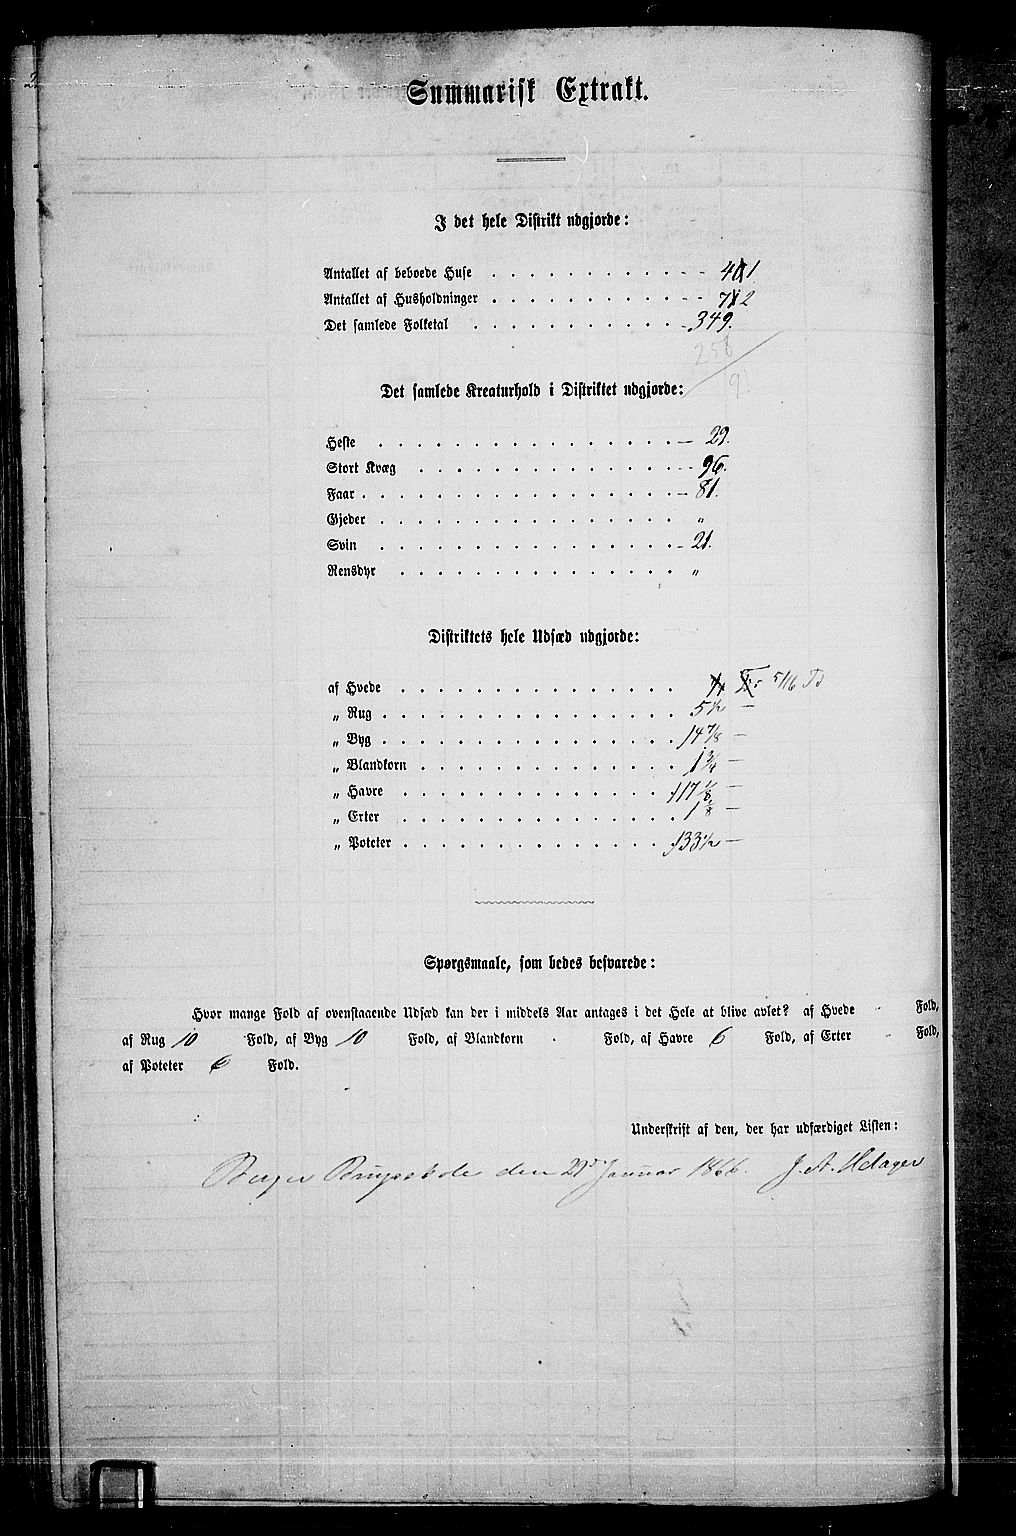 Summarisk Extrakt.
I det hele Distrikt udgjorde:
Antallet af beboede Huse 401
Antallet af Husholdninger 712
Det samlede Folketal 349.
258
91
Det samlede Kreaturhold i Distriktet udgjorde:
Heste 29.
Stort Kvæg 96.
Faar 81.
Gjeder "
Svin 21.
Rensdyr "
Distriktets hele Udsæd udgjorde:
af Hvede 5/16 Td
„ Rug 5 1/2 —
„ Byg 14 7/8 —
„ Blandkorn 1 3/4 —
„ Havre 117 1/8 —
„ Erter 1/8 —
„ Poteter 133 1/2 —
Spørgsmaale, som bedes besvarede:
Hvor mange Fold af ovenstaaende Udsæd kan der i middels Aar antages i det Hele at blive avlet? af Hvede - Fold,
af Rug 10 Fold, af Byg 10 Fold, af Blandkorn - Fold, af Havre 6 Fold, af Erter - Fold,
af Poteter 6 Fold.
Underskrift af den, der har udfærdiget Listen:
Berger den 21de Januar 1866. J. A. Helager